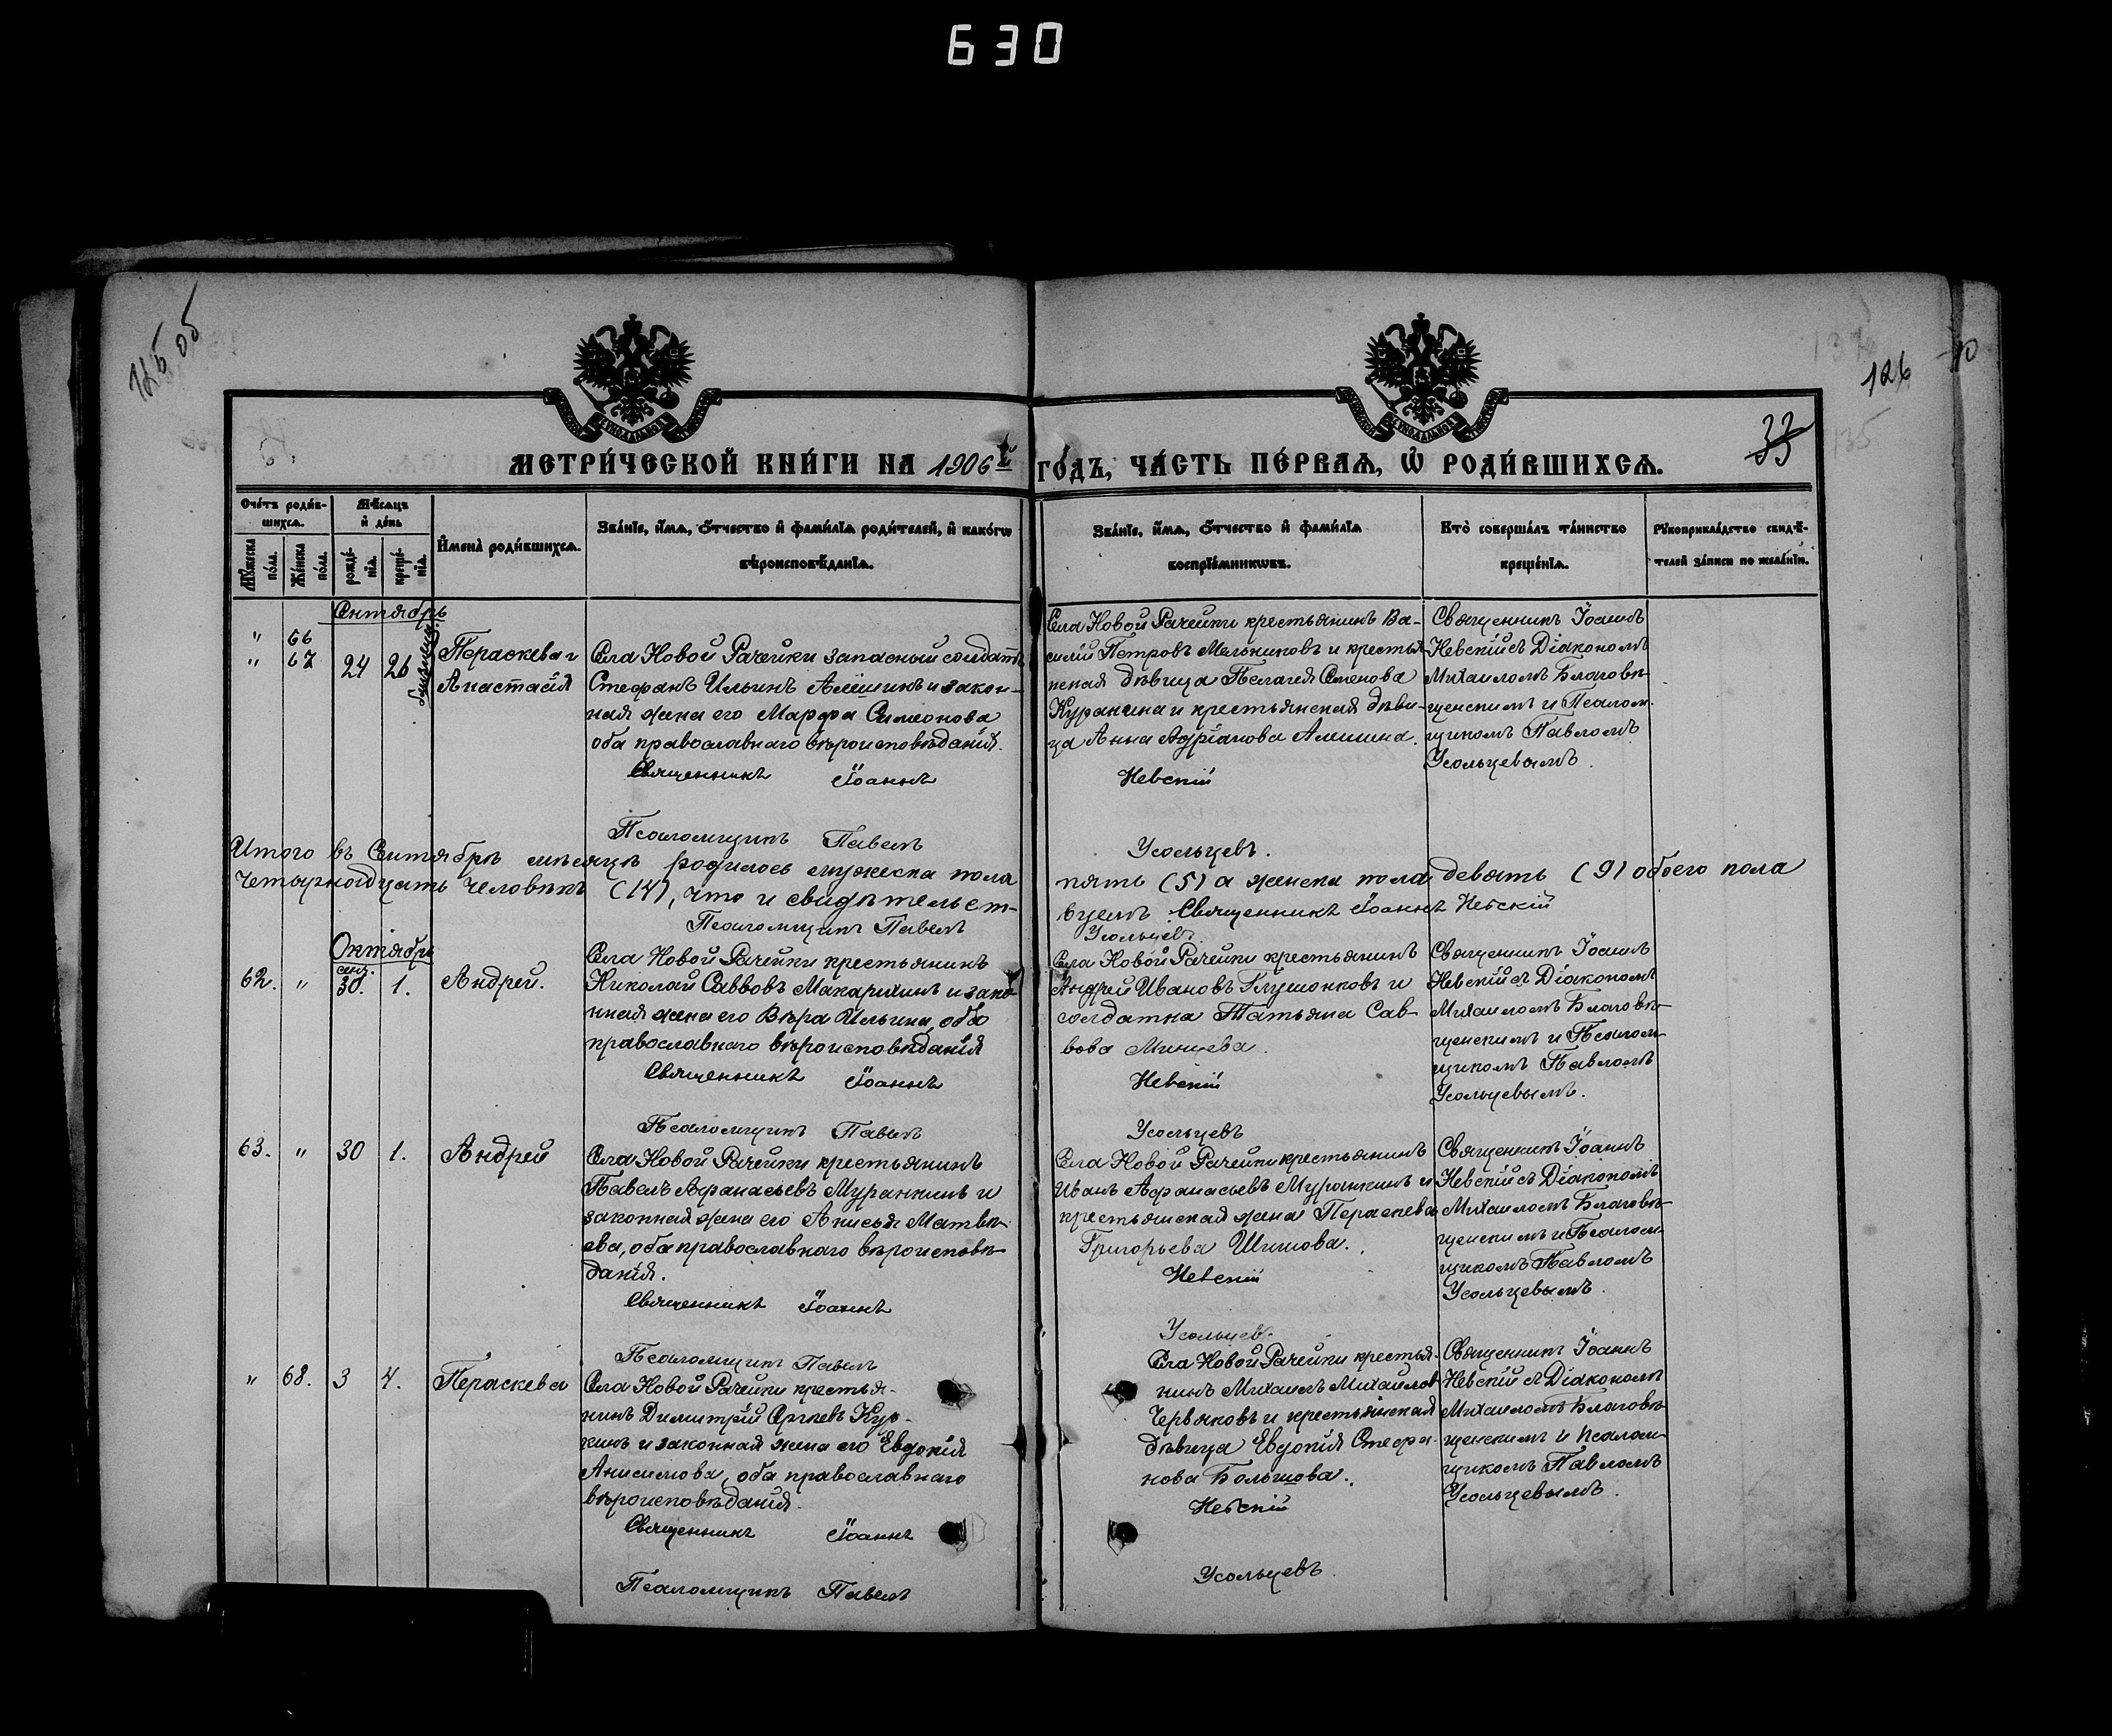 630
125 об
126
МЕТРИ́ЧЕСКОЙ КНИ́ГИ НА 1906й ГО́ДЪ, ЧА́СТЬ ПЕ́РВАѦ, Ѡ҆ РОДИ́ВШИХСѦ.
Сче́тъ роди́в-
шихсѧ.
Мѣ́сѧцъ
и҆ де́нь
Мꙋ́жеска
по́ла.
Же́нска
по́ла.
рожде́-
нїѧ.
креще́-
нїѧ.
И҆мена̀ роди́вшихсѧ.
Зва́нїе, и҆́мѧ, ѻ҆́тчество и҆ фами́лїѧ роди́телей, и҆ како́гѡ
вѣроисповѣ́данїѧ.
Зва́нїе, и҆́мѧ, ѻ҆́тчество и҆ фами́лїѧ
воспрїе́мникѡвъ.
Кто̀ соверша́лъ та́инство
креще́нїѧ.
Рꙋкоприкла́дство свидѣ́-
телей за́писи по жела́нїю.
Сентябрь
" 66
" 67 24 26
Параскева и
Анастасія
Села Новой Рачейки запасный солдатъ
Стефанъ Ильинъ Алёшинъ и закон-
ная жена его Марѳа Симеонова
оба православнаго вѣроисповѣданія.
Священникъ Іоаннъ
Псаломщикъ Павелъ
Села Новой Рачейки крестьянинъ Ва-
силій Петровъ Мельниковъ и крестья
нская дѣвица Пелагея
и крестьянская дѣви-
ца Анна Адріанова Алешина.
Невскій
Усольцевъ.
Священникъ Іоаннъ
Невскій съ Діакономъ
Михаиломъ Благовѣ-
щенскимъ и Псалом-
щикомъ Павломъ
Усольцевымъ.
Итого въ Сентябрѣ мѣсяцѣ родилось мужеска пола
пять (5) а женска пола девять (9) обоего пола
четырнадцать человѣкъ (14), что и свидѣтельст-
вуемъ. Священникъ Іоаннъ Невскій
Псаломщикъ Павелъ
Усольцевъ.
Октябрь
62. " сент. 30. 1. Андрей.
Села Новой Рачейки крестьянинъ
Николай Саввовъ Макарихинъ и зако
нная жена его Вѣра Ильина, оба
православнаго вѣроисповѣданія
Священникъ Іоаннъ
Псаломщикъ Павелъ
Села Новой Рачейки крестьянинъ
Андрей Ивановъ Глушонковъ и
солдатка Татьяна Сав-
вова
Невскій
Усольцевъ
Священникъ Іоаннъ
Невскій съ Діакономъ
Михаиломъ Благовѣ-
щенскимъ и Псалом-
щикомъ Павломъ
Усольцевымъ.
63. " 30 1. Андрей
Села Новой Рачейки крестьянинъ
Павелъ Афанасьевъ Муранкинъ и
законная жена его Анисья Матвѣ-
ева, оба православнаго вѣроисповѣ-
данія.
Священникъ Іоаннъ
Псаломщикъ Павелъ
Села Новой Рачейки крестьянинъ
Иванъ Афанасьевъ Муранкинъ и
крестьянская жена Параскева
Григорьева Шишова.
Невскій
Усольцевъ.
Священникъ Іоаннъ
Невскій съ Діакономъ
Михаиломъ Благовѣ-
щенскимъ и Псалом-
щикомъ Павломъ
Усольцевымъ.
" 68. 3 4. Параскева
Села Новой Рачейки крестья-
нинъ Димитрій Сергѣевъ Кур-
кинъ и законная жена его Евдокія
Анисимова, оба православнаго
вѣроисповѣданія.
Священникъ Іоаннъ
Псаломщикъ Павелъ
Села Новой Рачейки крестья-
нинъ Михаилъ Михайловъ
Червяковъ и крестьянская
дѣвица Евдокія Стефа-
нова Большова.
Невскій
Усольцевъ.
Священникъ Іоаннъ
Невскій съ Діакономъ
Михаиломъ Благовѣ-
щенскимъ и Псалом-
щикомъ Павломъ
Усольцевымъ.